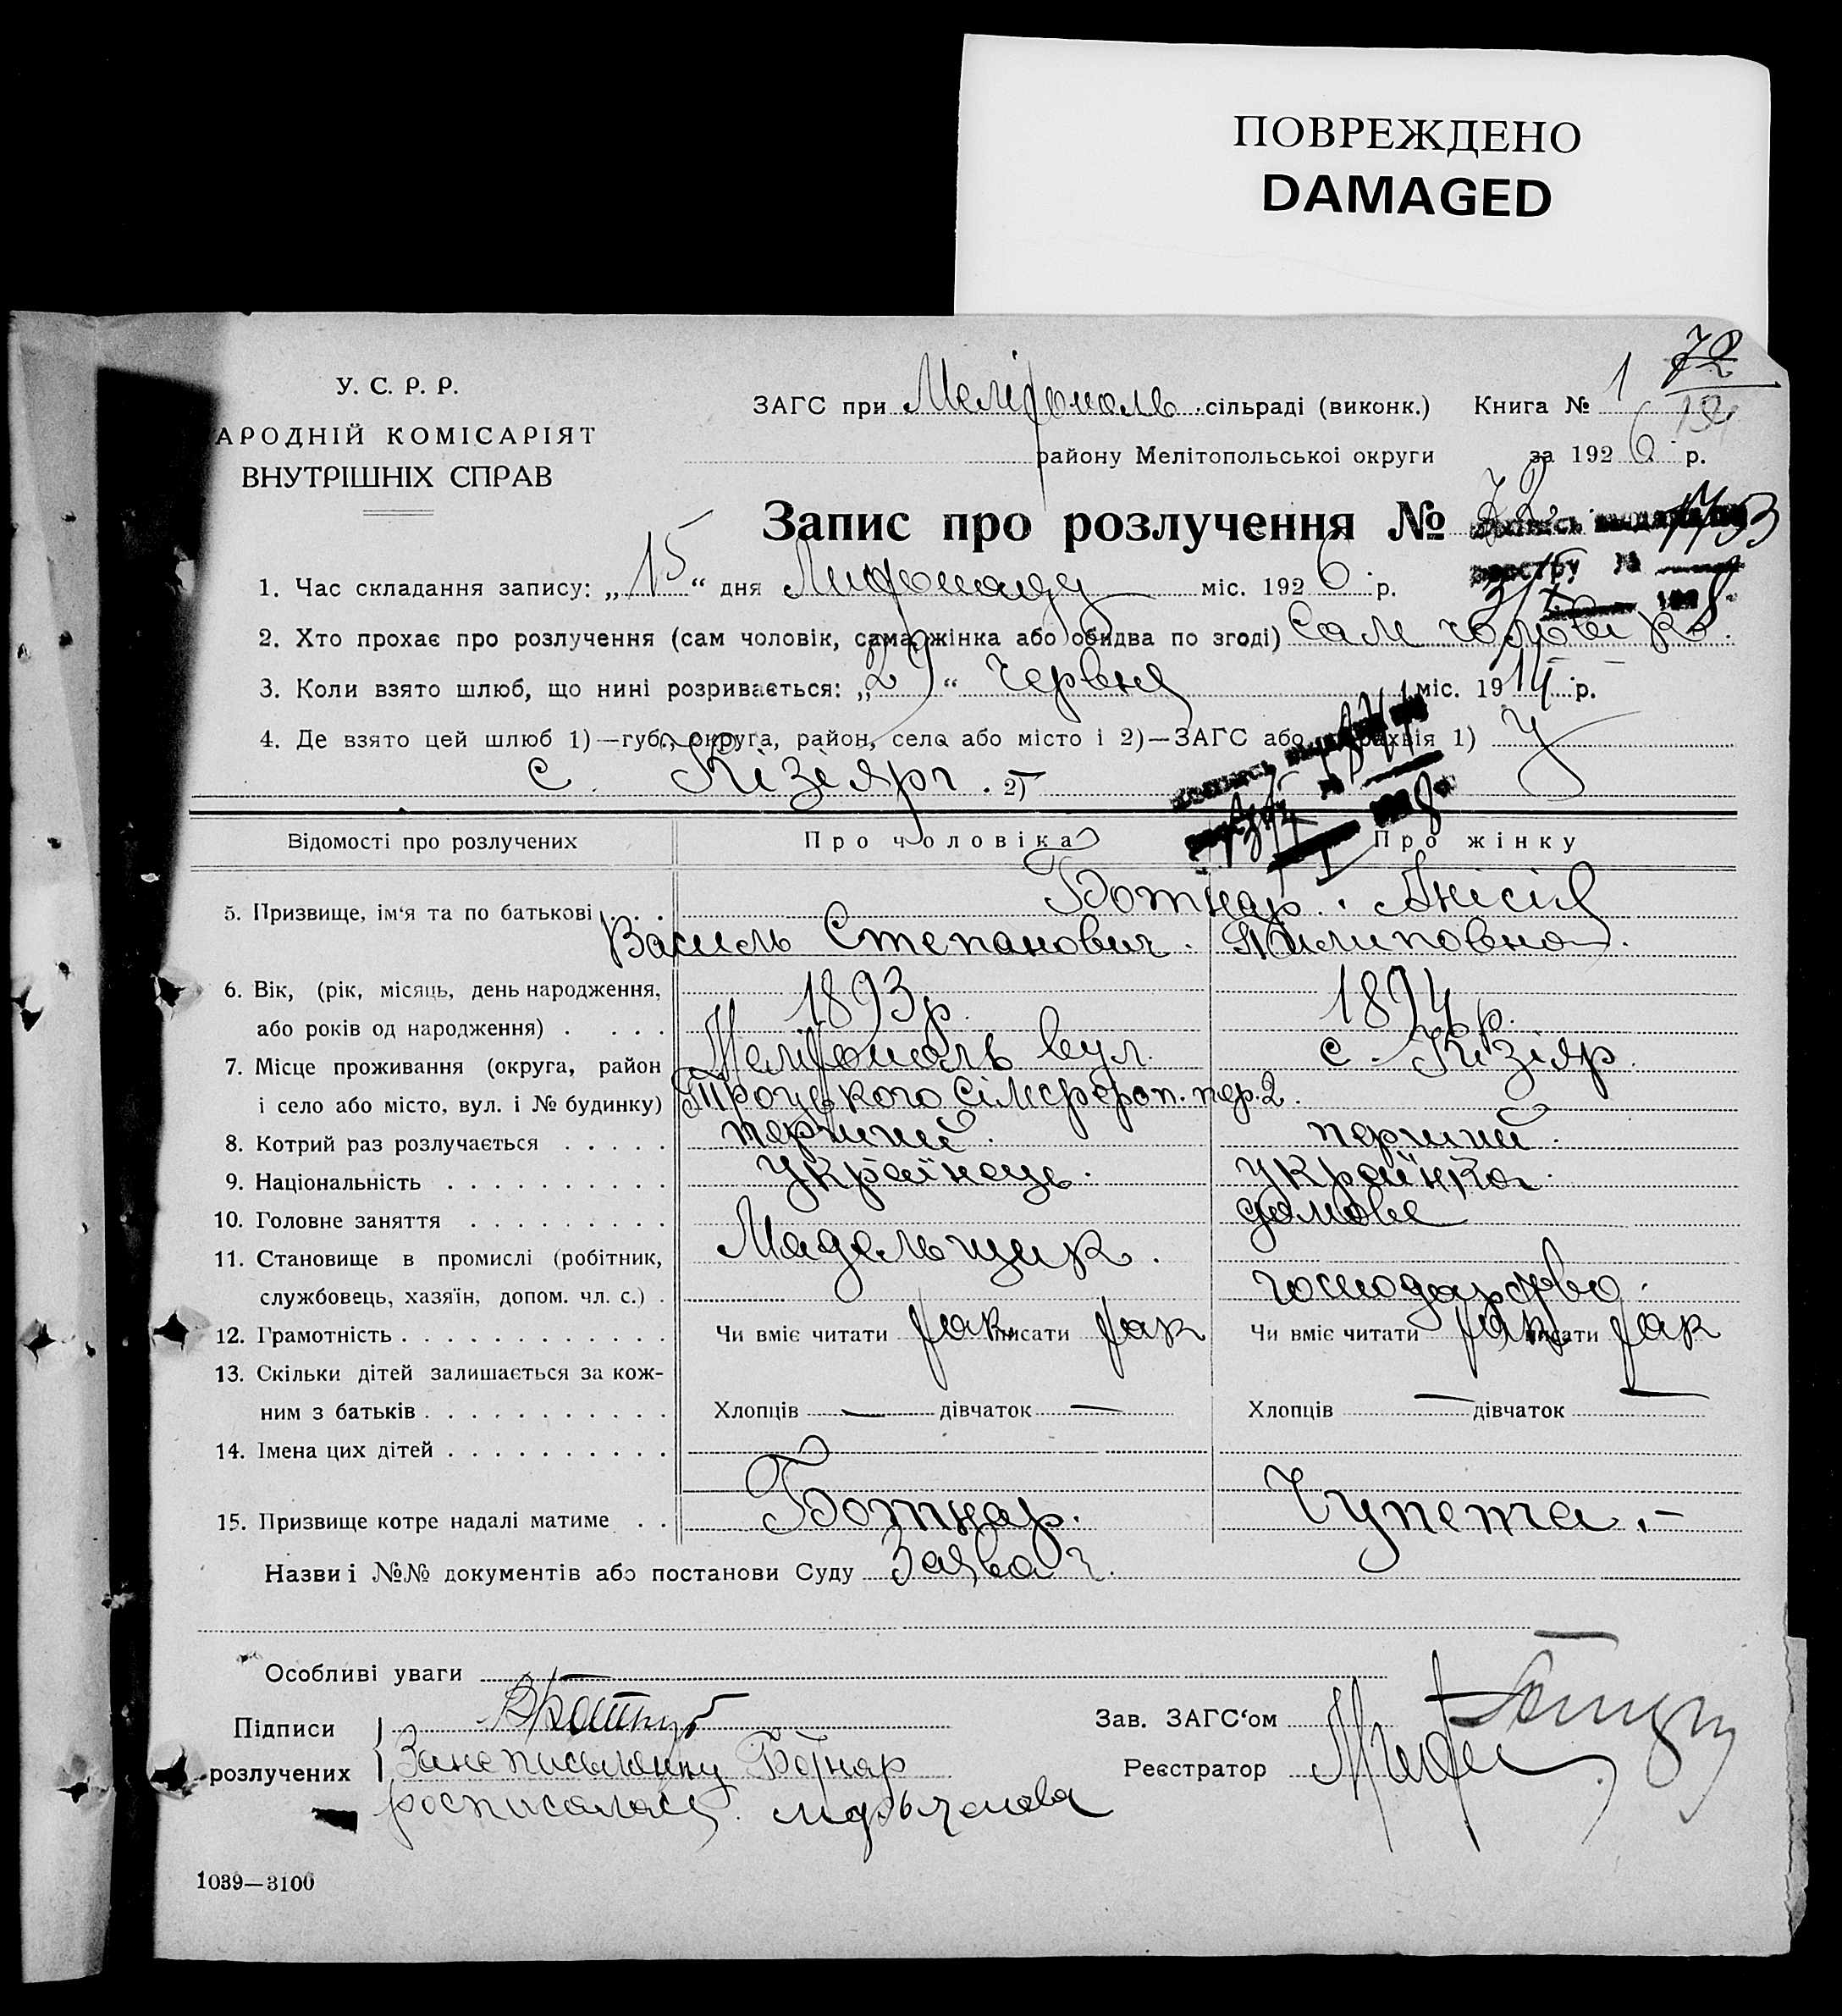 ПОВРЕЖДЕНО
DAMAGED
У. С. Р. Р.
АРОДНІЙ КОМІСАРІЯТ
ВНУТРІШНІХ СПРАВ
72
ЗАГС при Мелітополь сільраді (виконк.) Книга № 1
району Мелітопольської округи за 1926 р.
Запис про розлучення № 72
1. Час складання запису: „15“ дня Листопаду міс. 1926 р.
2. Хто прохає про розлучення (сам чоловік, сама жінка або обидва по згоді) Сам чоловік.
3. Коли взято шлюб, що нині розривається: „29“ червня міс. 1914 р.
4. Де взято цей шлюб 1)—губ., округа, район, село або місто і 2)—ЗАГС або парахвія 1) У
с. Кізіярі. 2)
Відомості про розлучених Про чоловіка Про жінку
5. Призвище, ім‘я та по батькові . . . Ботнар. Анісія
Василь Степанович. Пилиповна.
6. Вік, (рік, місяць, день народження, 1893р. 1894р.
або років од народження) . . . .
7. Місце проживання (округа, район Мелітополь вул. с. Кізіяр.
і село або місто, вул. і № будинку) Троцького Сімфероп. пер. 2.
8. Котрий раз розлучається . . . . . перший. перший.
9. Національність . . . . . . . . . . Українець. Українка.
10. Головне заняття . . . . . . . . . домове
11. Становище в промислі (робітник, Мадельщик.
службовець, хазяїн, допом. чл. с.) . господарство.
12. Грамотність . . . . . . . . . . . . Чи вміє читати так писати так Чи вміє читати так писати так
13. Скільки дітей залишається за кож-
ним з батьків . . . . . . . . . . . Хлопців — дівчаток — Хлопців — дівчаток —
14. Імена цих дітей . . . . . . . . . .
15. Призвище котре надалі матиме . . Ботнар. Чупета.-
Назви і №№ документів або постанови Суду Заява
Особливі уваги
Підписи
Зав. ЗАГС‘ом
розлучених За неписьменну Ботнар Реєстратор
росписалась
1039—3100